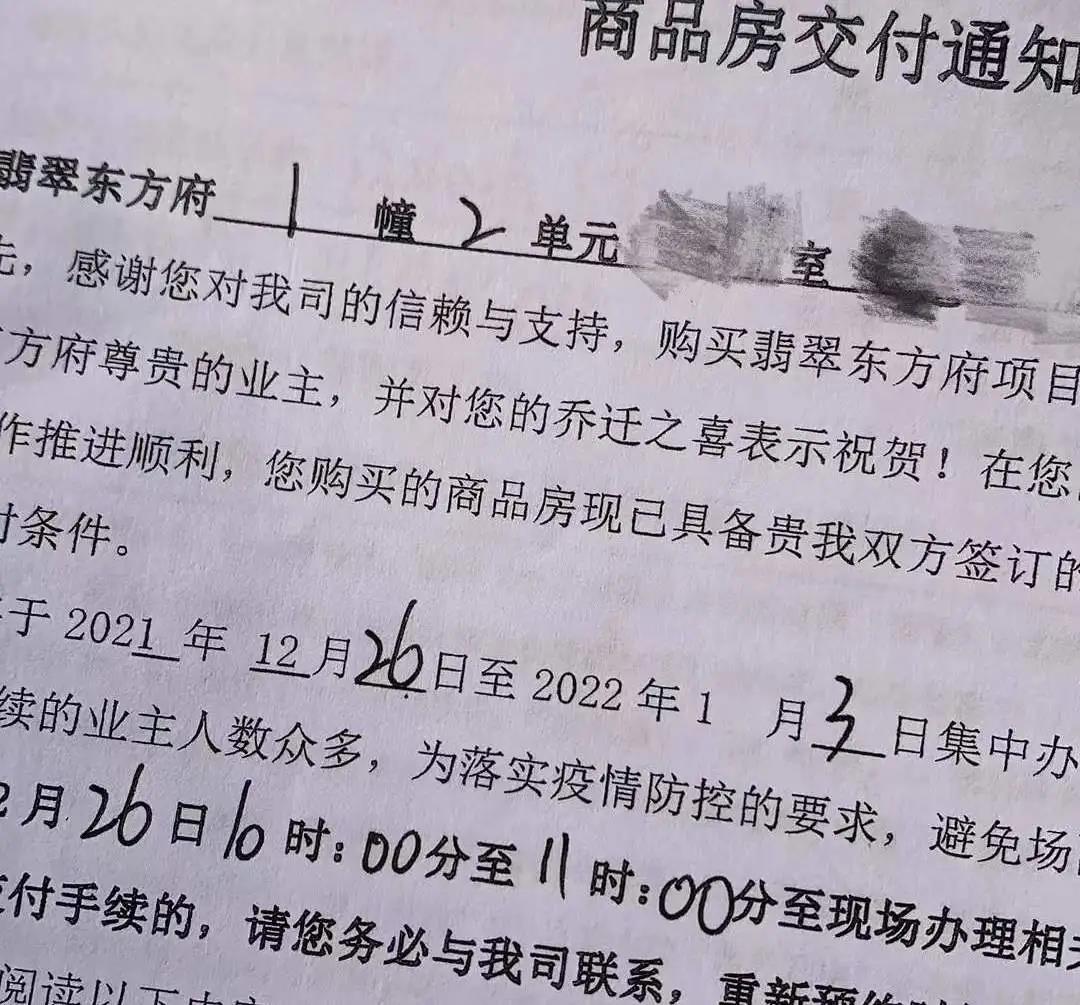 商品房交付通知
翡翠东方府 1 幢 2 单元 室
，感谢您对我司的信赖与支持，购买翡翠东方府项目
方府尊贵的业主，并对您的乔迁之喜表示祝贺！在您
作推进顺利，您购买的商品房现已具备贵我双方签订的
付条件。
于 2021 年 12 月 26 日至 2022 年 1 月 3 日集中办
续的业主人数众多，为落实疫情防控的要求，避免场
2 月 26 日 10 时：00 分至 11 时：00 分至现场办理相关
交付手续的，请您务必与我司联系，重新预约
阅读以下内容